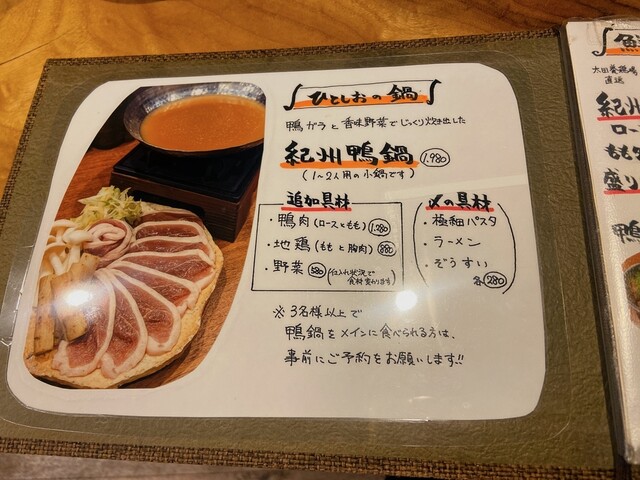 ひとしおの鍋
鴨ガラと香味野菜でじっくり炊き出した
紀州鴨鍋 1,980
(1〜2人用の小鍋です)
追加具材
・鴨肉(ロースともも) 1,280
・地鶏(ももと胸肉) 880
・野菜 580 (仕入れ状況で
食材変わります)
〆の具材
・極細パスタ
・ラーメン
・ぞうすい
各280
※3名様以上で
鴨鍋をメインに食べられる方は、
事前にご予約をお願いします!!
太田養鶏場
直送
紀州
ロー
もも
盛り
鴨